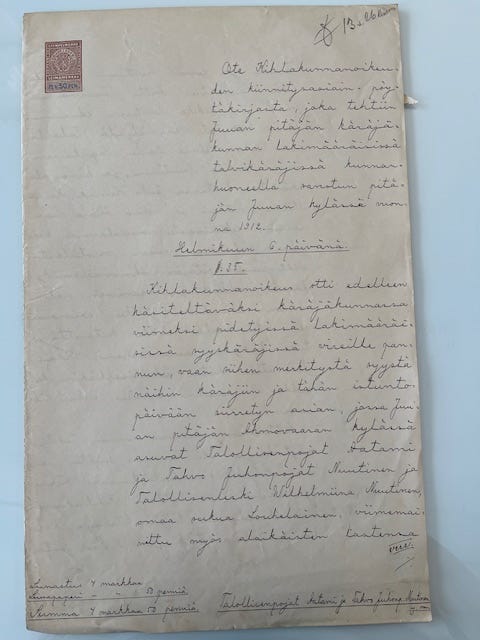 13
Ote Kihlakunnanoikeu-
den kiinnitysasiain pöy-
täkirjasta, joka tehtiin
Juuan pitäjän käräjä-
kunnan lakimääräisissä
talvikäräjissä kunnan-
huoneella sanotun pitä-
jän Juuan kylässä vuon-
na 1912.
Helmikuun 6. päivänä.
§. 35.
Kihlakunnanoikeus otti edelleen
käsiteltäväksi käräjäkunnassa
viimeksi pidetyissä lakimääräi-
sissä syyskäräjissä vireille pan-
nun, vaan siihen merkitystä syystä
näihin käräjiin ja tähän istunto-
päivään siirretyn asian, jossa Juu-
an pitäjän Ahmovaaran kylässä
asuvat Talollisenpojat Aatami
ja Tahvo Juhonpojat Nuutinen ja
Talollisenleski Wilhelmiina Nuutinen,
omaa sukua Louhelainen, viimemai-
nittu myös alaikäisten lastensa
Lunastus 4 markkaa
Leimapaperi " " 50 penniä
Summa 4 markkaa 50 penniä.
Talollisenpojat Aatami ja Tahvo Juhonp. Nuutinen